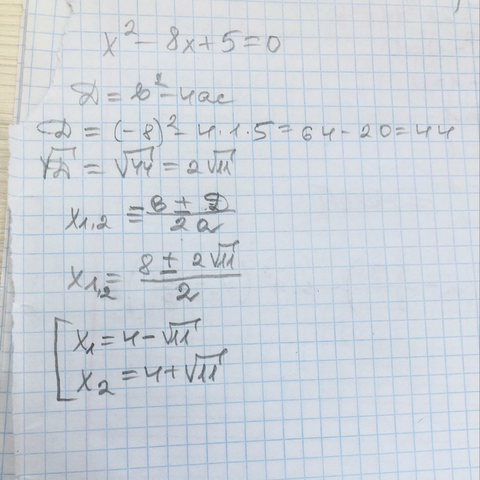 x² - 8x + 5 = 0
Д = в² - 4ac
Д = (-8)² - 4 · 1 · 5 = 64 - 20 = 44
√Д = √44 = 2√11
x₁,₂ = в ± Д / 2a
x₁,₂ = 8 ± 2√11 / 2
[ x₁ = 4 - √11
x₂ = 4 + √11